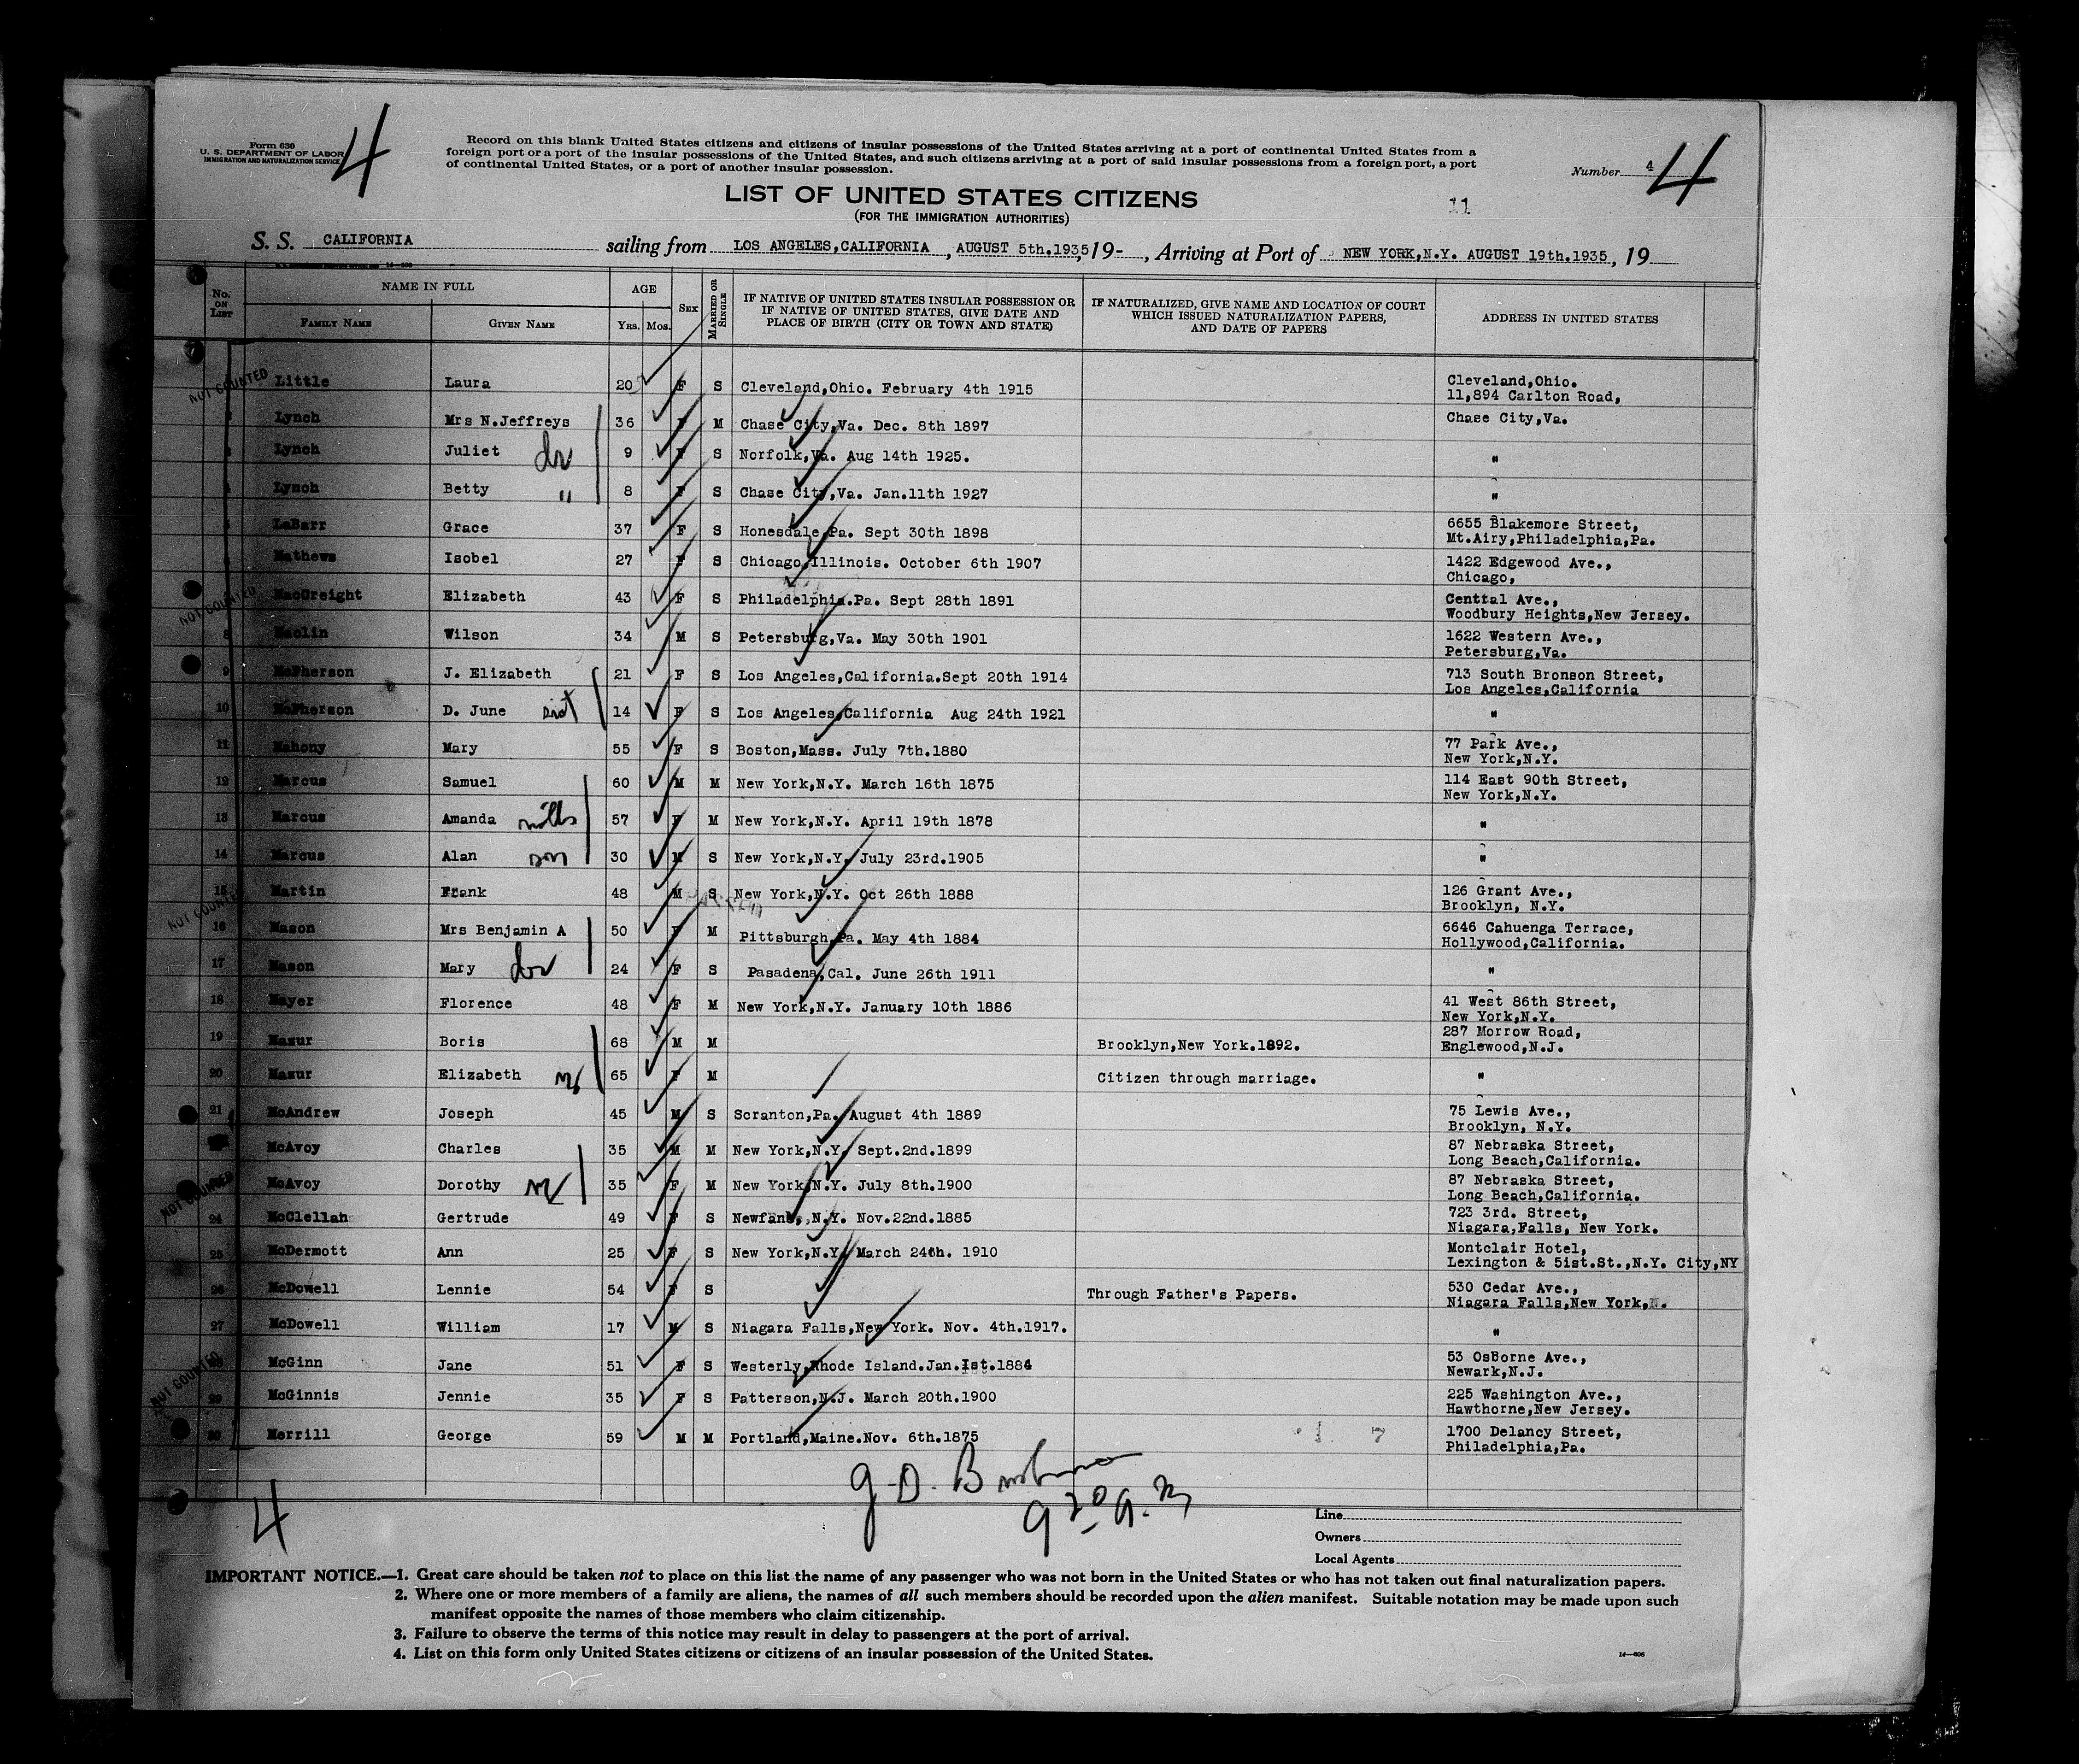 4
4
Form 630
U. S. DEPARTMENT OF LABOR
IMMIGRATION AND NATURALIZATION SERVICE
Record on this blank United States citizens and citizens of insular possessions of the United States arriving at a port of continental United States from a
foreign port or a port of the insular possessions of the United States, and such citizens arriving at a port of said insular possessions from a foreign port, a port
of continental United States, or a port of another insular possession.
Number 4
LIST OF UNITED STATES CITIZENS
(FOR THE IMMIGRATION AUTHORITIES)
11
S. S. CALIFORNIA sailing from LOS ANGELES,CALIFORNIA , AUGUST 5th.1935,19- , Arriving at Port of NEW YORK,N.Y. AUGUST 19th.1935 , 19
No. ON LIST
NAME IN FULL
FAMILY NAME GIVEN NAME
AGE
YRS. MOS.
SEX
MARRIED OR SINGLE
IF NATIVE OF UNITED STATES INSULAR POSSESSION OR
IF NATIVE OF UNITED STATES, GIVE DATE AND
PLACE OF BIRTH (CITY OR TOWN AND STATE)
IF NATURALIZED, GIVE NAME AND LOCATION OF COURT
WHICH ISSUED NATURALIZATION PAPERS,
AND DATE OF PAPERS
ADDRESS IN UNITED STATES
NOT COUNTED
Little Laura 20 F S Cleveland,Ohio. February 4th 1915 Cleveland,Ohio.
11,894 Carlton Road,
Lynch Mrs N.Jeffreys 36 F M Chase City,Va. Dec. 8th 1897 Chase City,Va.
Lynch Juliet 9 F S Norfolk,Va. Aug 14th 1925. "
Lynch Betty " 8 F S Chase City,Va. Jan.11th 1927 "
LaBarr Grace 37 F S Honesdale,Pa. Sept 30th 1898 6655 Blakemore Street,
Mt.Airy,Philadelphia,Pa.
Mathews Isobel 27 F S Chicago,Illinois. October 6th 1907 1422 Edgewood Ave.,
Chicago,
NOT COUNTED
MacCreight Elizabeth 43 F S Philadelphia.Pa. Sept 28th 1891 Centtal Ave.,
Woodbury Heights,New Jersey.
8 Maclin Wilson 34 M S Petersburg,Va. May 30th 1901 1622 Western Ave.,
Petersburg,Va.
9 McPherson J. Elizabeth 21 F S Los Angeles,California.Sept 20th 1914 713 South Bronson Street,
Los Angeles,California
10 McPherson D. June sist 14 F S Los Angeles,California Aug 24th 1921 "
11 Mahony Mary 55 F S Boston,Mass. July 7th.1880 77 Park Ave.,
New York,N.Y.
12 Marcus Samuel 60 M M New York,N.Y. March 16th 1875 114 East 90th Street,
New York,N.Y.
13 Marcus Amanda 57 F M New York,N.Y. April 19th 1878 "
14 Marcus Alan son 30 M S New York,N.Y. July 23rd.1905 "
15 Martin Frank 48 M S New York,N.Y. Oct 26th 1888 126 Grant Ave.,
Brooklyn, N.Y.
NOT COUNTED
16 Mason Mrs Benjamin A 50 F M Pittsburgh,Pa. May 4th 1884 6646 Cahuenga Terrace,
Hollywood,California.
17 Mason Mary 24 F S Pasadena,Cal. June 26th 1911 "
18 Mayer Florence 48 F M New York,N.Y. January 10th 1886 41 West 86th Street,
New York,N.Y.
19 Mazur Boris 68 M M Brooklyn,New York.1892. 287 Morrow Road,
Englewood,N.J.
20 Mazur Elizabeth 65 F M Citizen through marriage. "
21 McAndrew Joseph 45 M S Scranton,Pa. August 4th 1889 75 Lewis Ave.,
Brooklyn, N.Y.
McAvoy Charles 35 M M New York,N.Y. Sept.2nd.1899 87 Nebraska Street,
Long Beach,California.
NOT COUNTED
McAvoy Dorothy 35 F M New York,N.Y. July 8th.1900 87 Nebraska Street,
Long Beach,California.
24 McClellah Gertrude 49 F S Newfane, N.Y. Nov.22nd.1885 723 3rd. Street,
Niagara,Falls, New York.
25 McDermott Ann 25 F S New York,N.Y. March 24th. 1910 Montclair Hotel,
Lexington & 5ist.St.,N.Y. City,NY
26 McDowell Lennie 54 F S Through Father's Papers. 530 Cedar Ave.,
Niagara Falls,New York,
27 McDowell William 17 M S Niagara Falls,New York. Nov. 4th.1917. "
NOT COUNTED
McGinn Jane 51 F S Westerly,Rhode Island.Jan.Ist.1884 53 OsBorne Ave.,
Newark,N.J.
29 McGinnis Jennie 35 F S Patterson,N.J. March 20th.1900 225 Washington Ave.,
Hawthorne,New Jersey.
30 Merrill George 59 M M Portland,Maine.Nov. 6th.1875 1700 Delancy Street,
Philadelphia,Pa.
4
Line
Owners
Local Agents
IMPORTANT NOTICE.—1. Great care should be taken not to place on this list the name of any passenger who was not born in the United States or who has not taken out final naturalization papers.
2. Where one or more members of a family are aliens, the names of all such members should be recorded upon the alien manifest. Suitable notation may be made upon such
manifest opposite the names of those members who claim citizenship.
3. Failure to observe the terms of this notice may result in delay to passengers at the port of arrival.
4. List on this form only United States citizens or citizens of an insular possession of the United States.